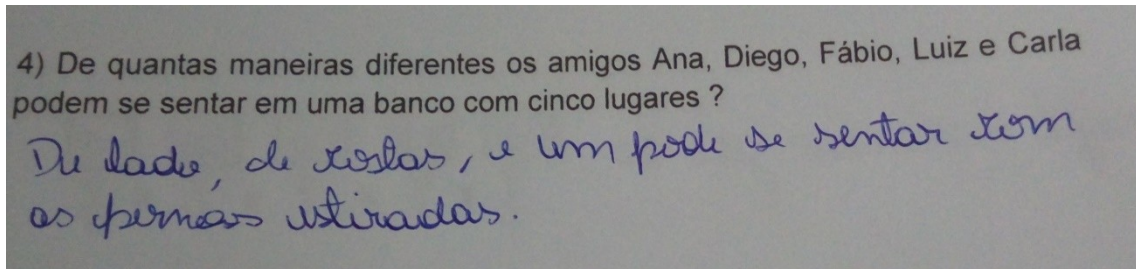 4) De quantas maneiras diferentes os amigos Ana, Diego, Fábio, Luiz e Carla
podem se sentar em uma banco com cinco lugares ?
De lado, de costas, e um pode se sentar com
as pernas estiradas.